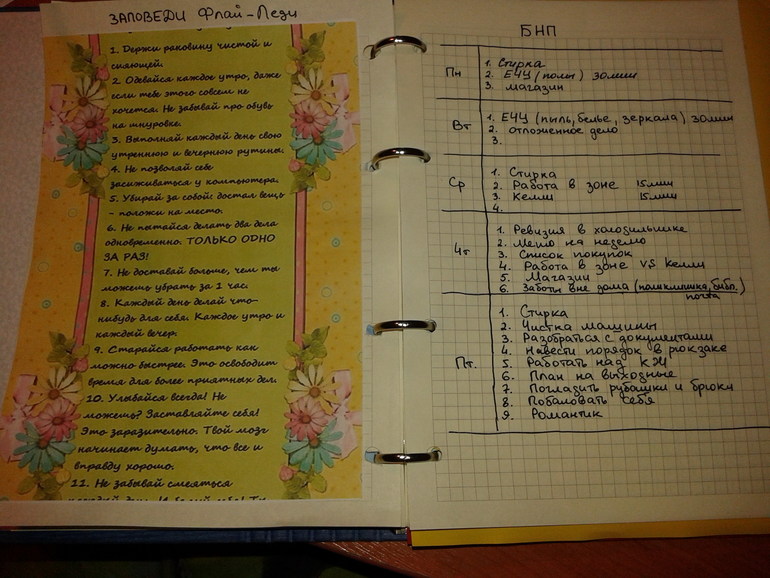 ЗАПОВЕДИ Флай-Леди
1. Держи раковину чистой и
сияющей.
2. Одевайся каждое утро, даже
если тебе этого совсем не
хочется. Не забывай про обувь
на шнуровке.
3. Выполняй каждый день свою
утреннюю и вечернюю рутины.
4. Не позволяй себе
засиживаться у компьютера.
5. Убирай за собой: достал вещь
- положи на место.
6. Не пытайся делать два дела
одновременно. ТОЛЬКО ОДНО
ЗА РАЗ!
7. Не доставай больше, чем ты
можешь убрать за 1 час.
8. Каждый день делай что-
нибудь для себя. Каждое утро и
каждый вечер.
9. Старайся работать как
можно быстрее. Это освободит
время для более приятных дел.
10. Улыбайся всегда! Не
можешь? Заставляйте себя!
Это заразительно. Твой мозг
начинает думать, что все и
вправду хорошо.
11. Не забывай смеяться
каждый день. И
БНП
Пн
1. Стирка
2. ЕЧЦ (полы) 30мин
3. магазин
Вт
1. ЕЧЦ (пыль, белье, зеркала) 30мин
2. отложенное дело
3.
Ср
1. Стирка
2. Работа в зоне 15мин
3. Келли 15мин
4.
Чт
1. Ревизия в холодильнике
2. Меню на неделю
3. Список покупок
4. Работа в зоне vs Келли
5. Магазин
6. Заботы вне дома (поликлиника, библ.)
почта
Пт.
1. Стирка
2. Чистка машины
3. Разобраться с документами
4. Навести порядок в рюкзаке
5. Работать над КЖ
6. План на выходные
7. Погладить рубашки и брюки
8. Побаловать себя
9. Романтик